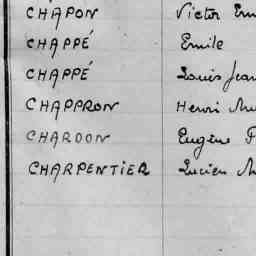 CHAPON Victor Em
CHAPPÉ Emile
CHAPPÉ Louis Jean
CHAPPRON Henri
CHARDON Eugène F
CHARPENTIER Lucien M